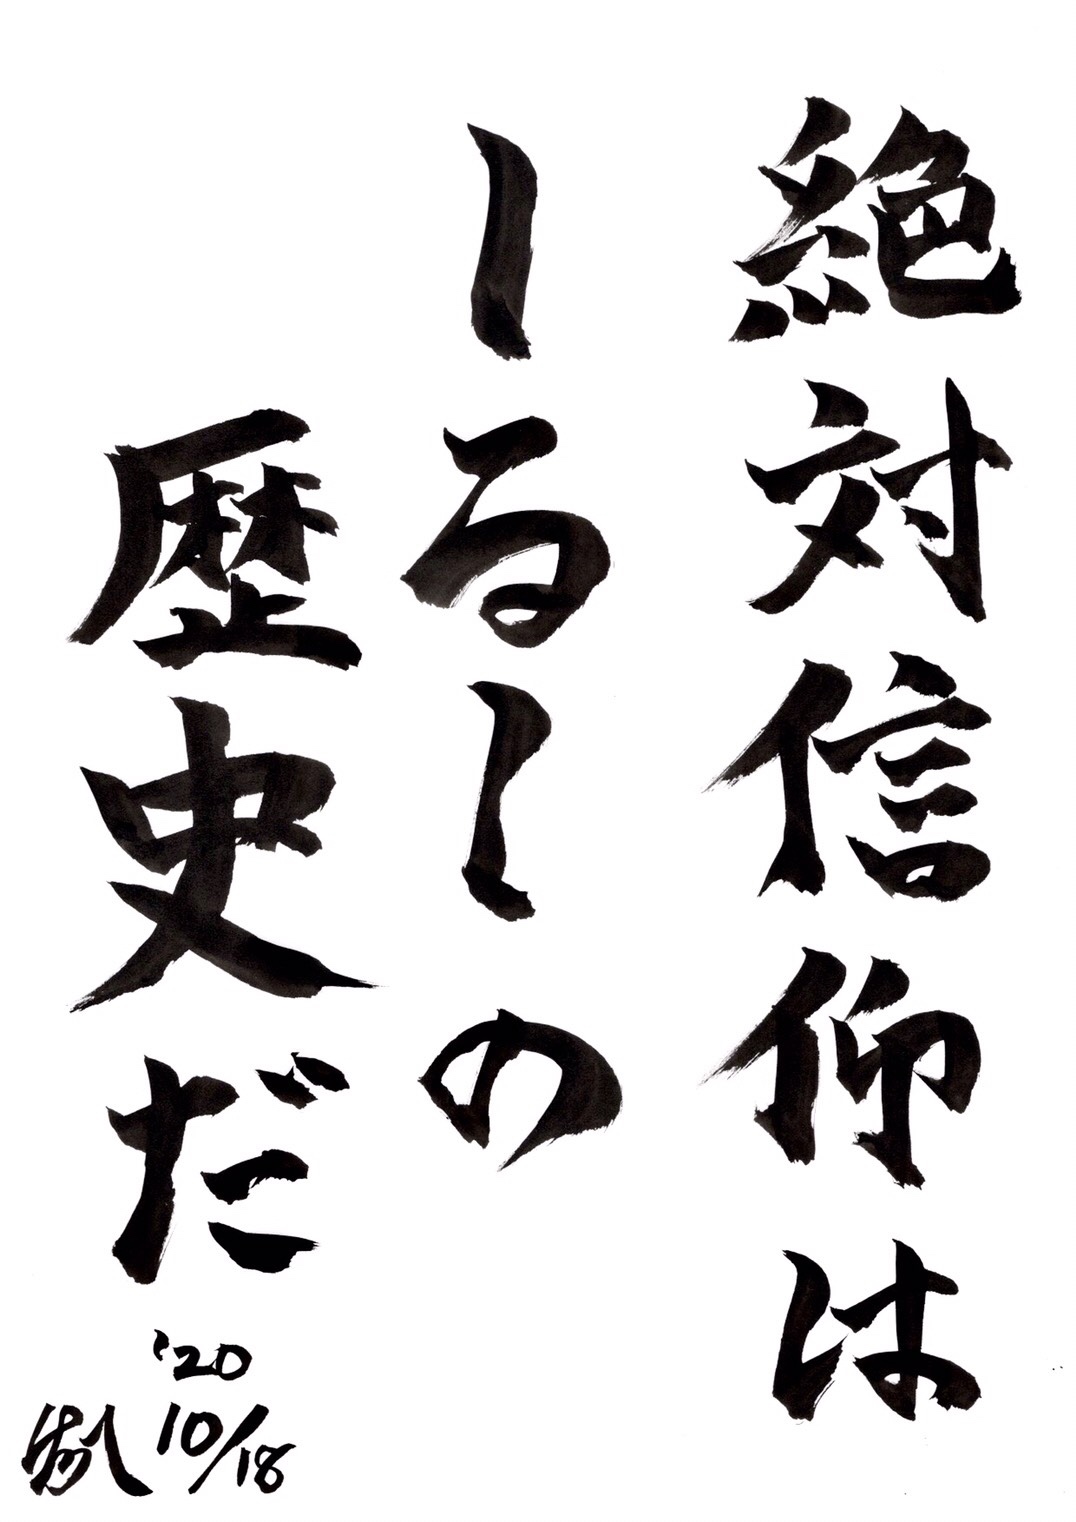 絶対信仰は
しるしの
歴史だ
'20
10/18